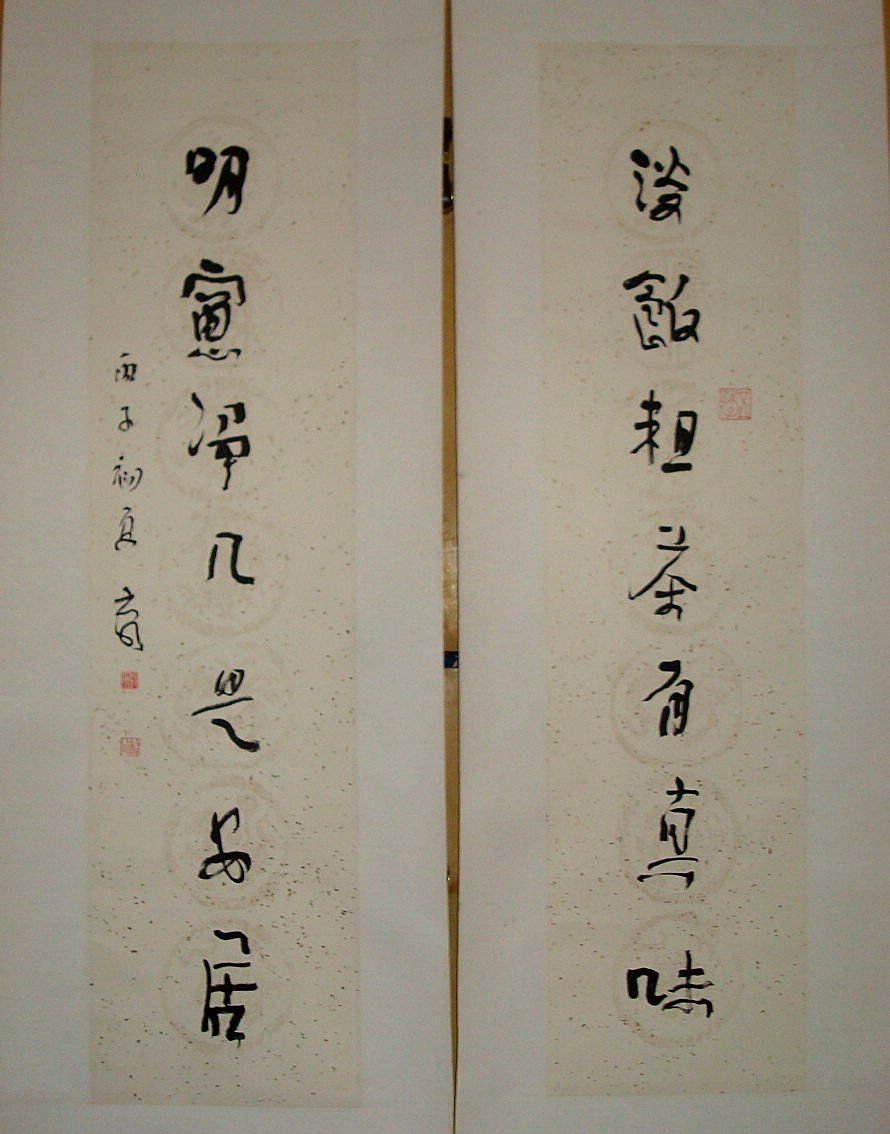 淡飯粗茶有真味
明窗淨几是安居
丙子初夏